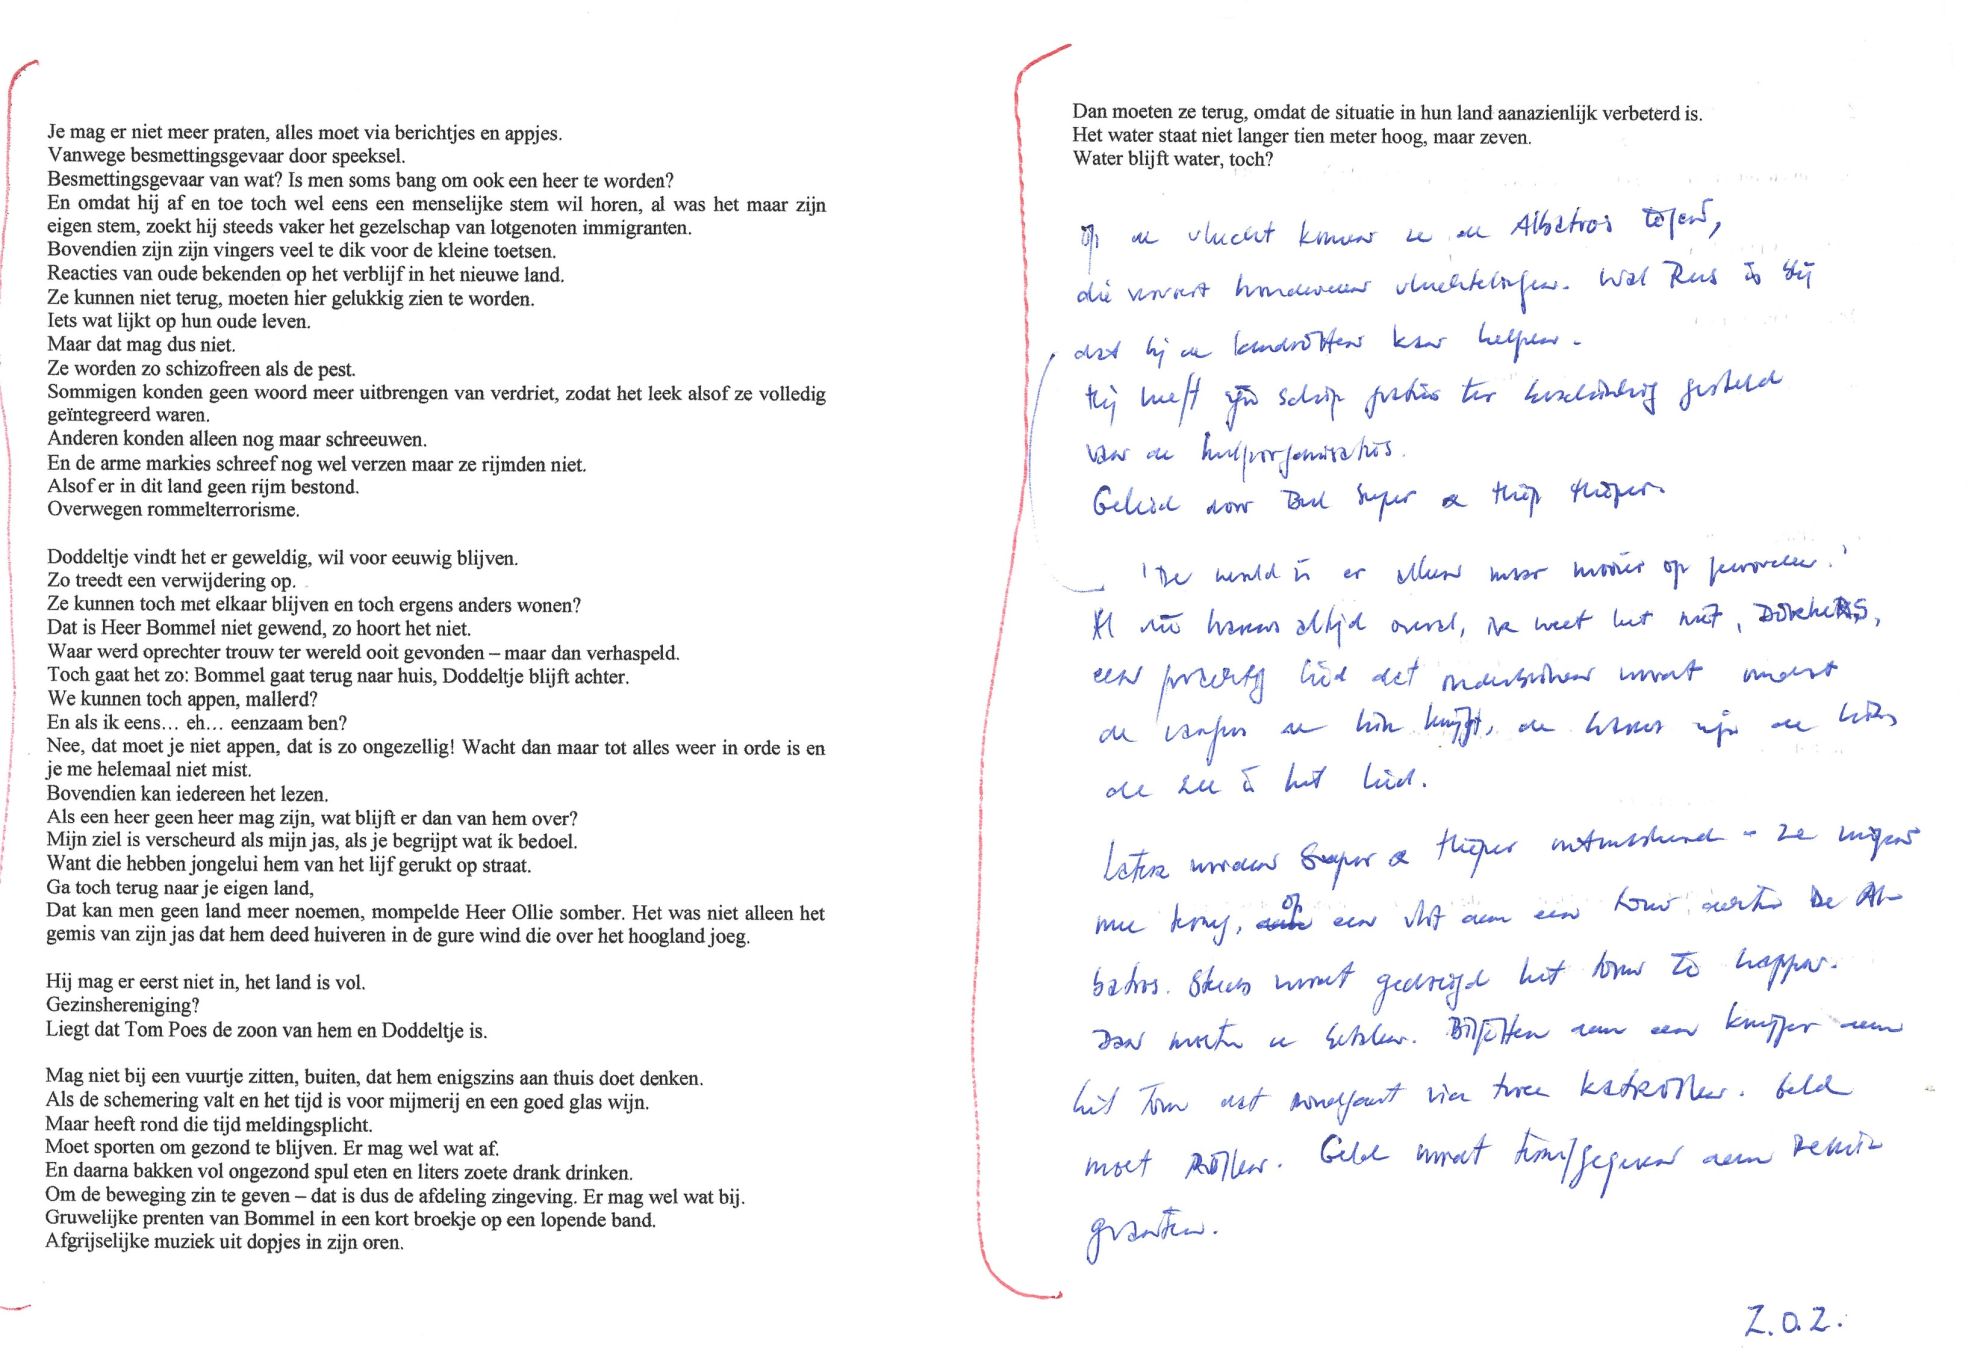 Je mag er niet meer praten, alles moet via berichtjes en appjes.
Vanwege besmettingsgevaar door speeksel.
Besmettingsgevaar van wat? Is men soms bang om ook een heer te worden?
En omdat hij af en toe toch wel eens een menselijke stem wil horen, al was het maar zijn
eigen stem, zoekt hij steeds vaker het gezelschap van lotgenoten immigranten.
Bovendien zijn zijn vingers veel te dik voor de kleine toetsen.
Reacties van oude bekenden op het verblijf in het nieuwe land.
Ze kunnen niet terug, moeten hier gelukkig zien te worden.
Iets wat lijkt op hun oude leven.
Maar dat mag dus niet.
Ze worden zo schizofreen als de pest.
Sommigen konden geen woord meer uitbrengen van verdriet, zodat het leek alsof ze volledig
geïntegreerd waren.
Anderen konden alleen nog maar schreeuwen.
En de arme markies schreef nog wel verzen maar ze rijmden niet.
Alsof er in dit land geen rijm bestond.
Overwegen rommelterrorisme.
Doddeltje vindt het er geweldig, wil voor eeuwig blijven.
Zo treedt een verwijdering op.
Ze kunnen toch met elkaar blijven en toch ergens anders wonen?
Dat is Heer Bommel niet gewend, zo hoort het niet.
Waar werd oprechter trouw ter wereld ooit gevonden – maar dan verhaspeld.
Toch gaat het zo: Bommel gaat terug naar huis, Doddeltje blijft achter.
We kunnen toch appen, mallerd?
En als ik eens… eh… eenzaam ben?
Nee, dat moet je niet appen, dat is zo ongezellig! Wacht dan maar tot alles weer in orde is en
je me helemaal niet mist.
Bovendien kan iedereen het lezen.
Als een heer geen heer mag zijn, wat blijft er dan van hem over?
Mijn ziel is verscheurd als mijn jas, als je begrijpt wat ik bedoel.
Want die hebben jongelui hem van het lijf gerukt op straat.
Ga toch terug naar je eigen land,
Dat kan men geen land meer noemen, mompelde Heer Ollie somber. Het was niet alleen het
gemis van zijn jas dat hem deed huiveren in de gure wind die over het hoogland joeg.
Hij mag er eerst niet in, het land is vol.
Gezinshereniging?
Liegt dat Tom Poes de zoon van hem en Doddeltje is.
Mag niet bij een vuurtje zitten, buiten, dat hem enigszins aan thuis doet denken.
Als de schemering valt en het tijd is voor mijmerij en een goed glas wijn.
Maar heeft rond die tijd meldingsplicht.
Moet sporten om gezond te blijven. Er mag wel wat af.
En daarna bakken vol ongezond spul eten en liters zoete drank drinken.
Om de beweging zin te geven – dat is dus de afdeling zingeving. Er mag wel wat bij.
Gruwelijke prenten van Bommel in een kort broekje op een lopende band.
Afgrijselijke muziek uit dopjes in zijn oren.
Dan moeten ze terug, omdat de situatie in hun land aanazienlijk verbeterd is.
Het water staat niet langer tien meter hoog, maar zeven.
Water blijft water, toch?
Op de vlucht komen ze de Albatros tegen,
die vervoert honderden vluchtelingen. Wal Rus is blij
dat hij de landrotten kan helpen.
Hij heeft zijn schip gratis ter beschikking gesteld
van de hulporganisaties.
Geleid door Bul Super & Hiep Hieper.
'De wereld is er alleen maar mooier op geworden!'
een prachtig lied dat onderbroken wordt omdat
de zee is het lied.
Later worden Super & Hieper ontmaskerd – ze mogen
mee terug, op een vlot aan een touw achter De Al-
batros. Steeds wordt gedreigd het touw te kappen.
Dan moeten ze betalen. Biljetten aan een knijper aan
het touw dat rondgaat via twee katrollen. Geld
moet rollen. Geld wordt teruggegeven aan de
Z.O.Z.